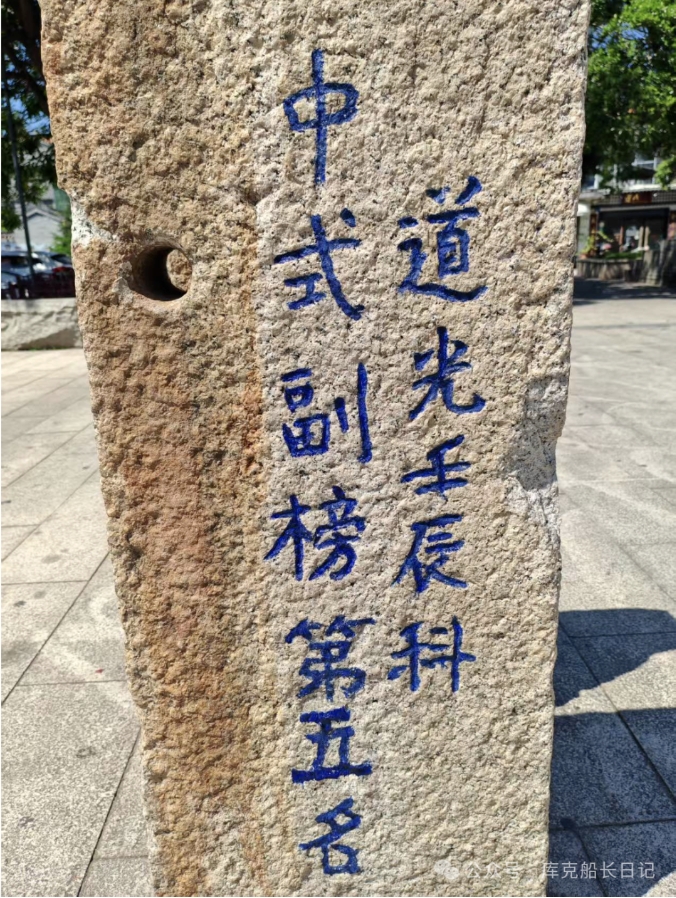 道光壬辰科
中式副榜第五名
公众号·库克船长日记